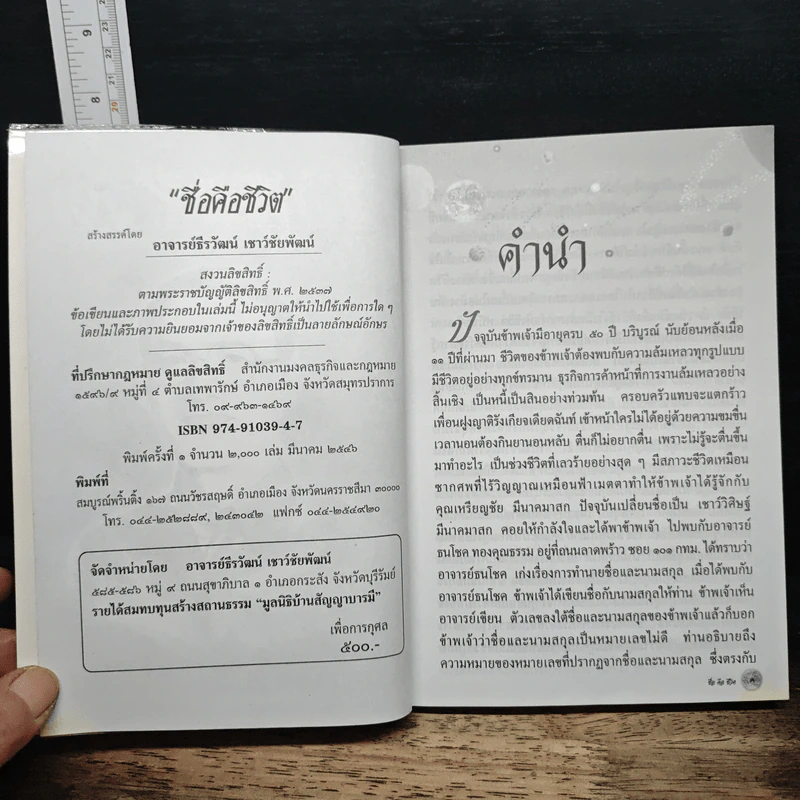 "ชื่อคือชีวิต"
สร้างสรรค์โดย
อาจารย์ธีรวัฒน์ เชาว์ชัยพัฒน์
สงวนลิขสิทธิ์ :
ตามพระราชบัญญัติลิขสิทธิ์ พ.ศ. ๒๕๓๗
ข้อเขียนและภาพประกอบในเล่มนี้ ไม่อนุญาตให้นำไปใช้เพื่อการใด ๆ
โดยไม่ได้รับความยินยอมจากเจ้าของลิขสิทธิ์เป็นลายลักษณ์อักษร
ที่ปรึกษากฎหมาย ดูแลลิขสิทธิ์ สำนักงานมงคลธุรกิจและกฎหมาย
๑๕๙๖/๙ หมู่ที่ ๔ ตำบลเทพารักษ์ อำเภอเมือง จังหวัดสมุทรปราการ
โทร. ๐๙-๙๖๓-๑๔๖๙
ISBN 974-91039-4-7
พิมพ์ครั้งที่ ๑ จำนวน ๒,๐๐๐ เล่ม มีนาคม ๒๕๔๖
พิมพ์ที่
สมบูรณ์พริ้นติ้ง ๑๖๗ ถนนวัชรสฤษดิ์ อำเภอเมือง จังหวัดนครราชสีมา ๓๐๐๐๐
โทร. ๐๔๔-๒๕๒๘๘๙, ๒๔๓๐๔๒ แฟกซ์ ๐๔๔-๒๕๔๙๒๐
จัดจำหน่ายโดย อาจารย์ธีรวัฒน์ เชาว์ชัยพัฒน์
๕๘๕-๕๘๖ หมู่ ๙ ถนนสุขาภิบาล ๑ อำเภอกระสัง จังหวัดบุรีรัมย์
รายได้สมทบทุนสร้างสถานธรรม "มูลนิธิบ้านสัญญาบารมี"
เพื่อการกุศล
๕๐๐.-
คำนำ
ปัจจุบันข้าพเจ้ามีอายุครบ ๕๐ ปี บริบูรณ์ นับย้อนหลังเมื่อ
๑๑ ปีที่ผ่านมา ชีวิตของข้าพเจ้าต้องพบกับความล้มเหลวทุกรูปแบบ
มีชีวิตอยู่อย่างทุกข์ทรมาน ธุรกิจการค้าหน้าที่การงานล้มเหลวอย่าง
สิ้นเชิง เป็นหนี้เป็นสินอย่างท่วมท้น ครอบครัวแทบจะแตกร้าว
เพื่อนฝูงญาติรังเกียจเดียดฉันท์ เข้าหน้าใครไม่ได้อยู่ด้วยความขมขื่น
เวลานอนต้องกินยานอนหลับ ตื่นก็ไม่อยากตื่น เพราะไม่รู้จะตื่นขึ้น
มาทำอะไร เป็นช่วงชีวิตที่เลวร้ายอย่างสุด ๆ มีสภาวะชีวิตเหมือน
ซากศพที่ไร้วิญญาณเหมือนฟ้าเมตตาทำให้ข้าพเจ้าได้รู้จักกับ
คุณเหรียญชัย มีนาคมาสก ปัจจุบันเปลี่ยนชื่อเป็น เชาว์วิศิษฐ์
มีนาคมาสก คอยให้กำลังใจและได้พาข้าพเจ้า ไปพบกับอาจารย์
ธนโชค ทองคุณธรรม อยู่ที่ถนนลาดพร้าว ซอย ๑๐๑ กทม. ได้ทราบว่า
อาจารย์ธนโชค เก่งเรื่องการทำนายชื่อและนามสกุล เมื่อได้พบกับ
อาจารย์ธนโชค ข้าพเจ้าได้เขียนชื่อกับนามสกุลให้ท่าน ข้าพเจ้าเห็น
อาจารย์เขียน ตัวเลขลงใต้ชื่อและนามสกุลของข้าพเจ้าแล้วก็บอก
ข้าพเจ้าว่าชื่อและนามสกุลเป็นหมายเลขไม่ดี ท่านอธิบายถึง
ความหมายของหมายเลขที่ปรากฏจากชื่อและนามสกุล ซึ่งตรงกับ
ชื่อ คือ ชีวิต